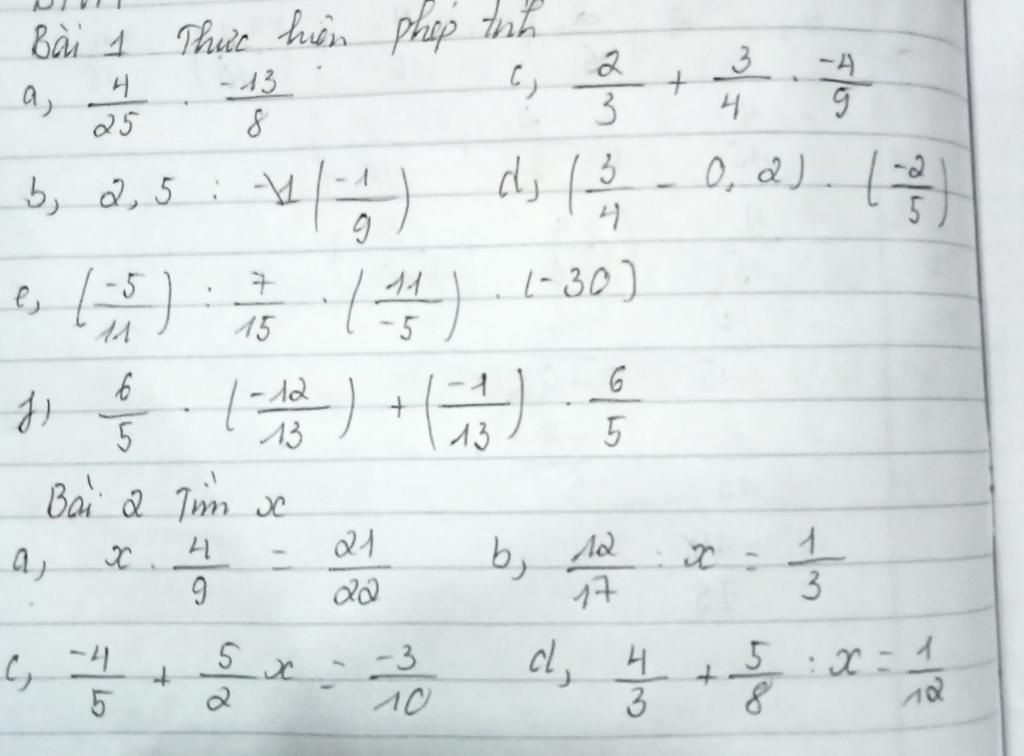 Bài 1 Thực hiện phép tính
a, 4/25 . -13/8 c, 2/3 + 3/4 . -4/9
b, 2,5 : (-1/9) d, (3/4 - 0,2) . (-2/5)
e, (-5/11) : 7/15 . (11/-5) . (-30)
f) 6/5 . (-12/13) + (-1/13) . 6/5
Bài 2 Tìm x
a, x . 4/9 = 21/22 b, 12/17 : x = 1/3
c, -4/5 + 5/2 x = -3/10 d, 4/3 + 5/8 : x = 1/12